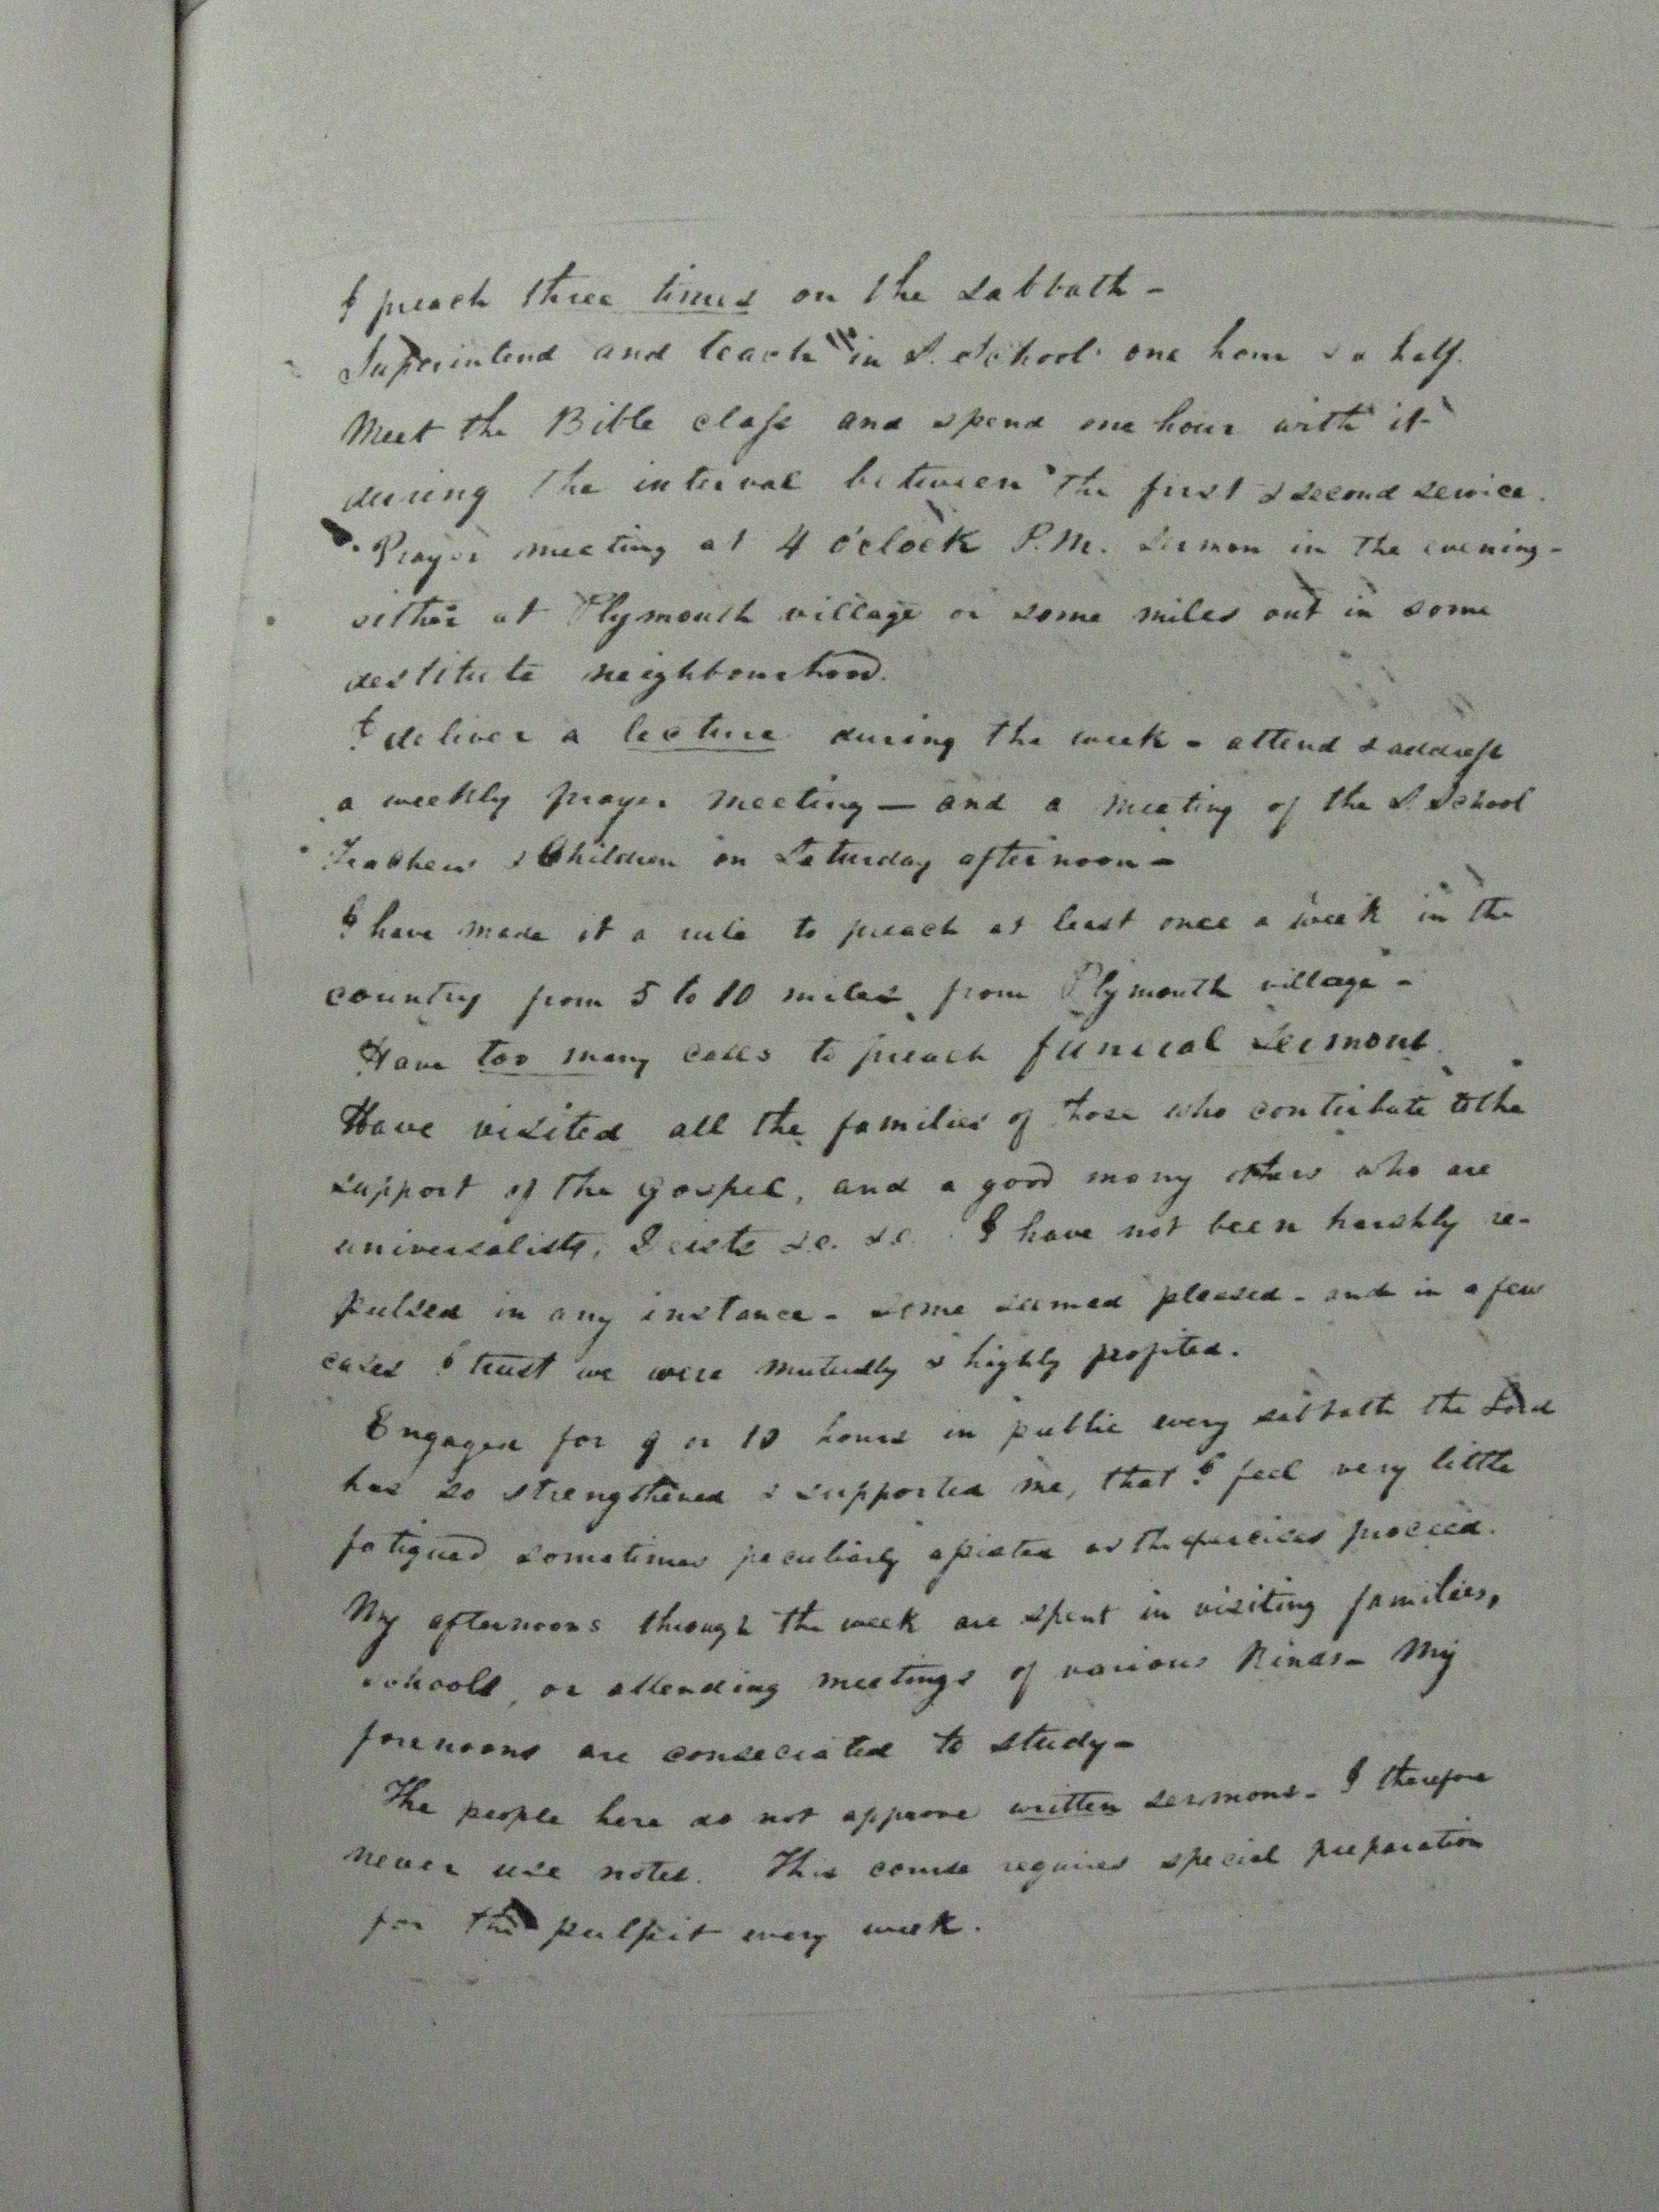 I preach three times on the Sabbath -
Superintend and teach in S. School one hour & a half.
Meet the Bible class and spend one hour with it
during the interval between the first & second service.
Prayer meeting at 4 o'clock P.M. Sermon in the evening -
either at Plymouth village or some miles out in some
destitute neighbourhood.
I deliver a lecture during the week - attend & address
a weekly prayer meeting — and a meeting of the S. School
Teachers & Children on Saturday afternoon -
I have made it a rule to preach at least once a week in the
country from 5 to 10 miles from Plymouth village -
Have too many calls to preach funeral Sermons
Have visited all the families of those who contribute to the
support of the Gospel, and a good many others who are
universalists, Deists &c. &c. I have not been harshly re-
pulsed in any instance - some seemed pleased - and in a few
cases I trust we were mutually & highly profited.
Engaged for 9 or 10 hours in public every sabbath the Lord
has so strengthened & supported me, that I feel very little
fatigued sometimes peculiarly as the exercises proceed.
My afternoons through the week are spent in visiting families,
schools, or attending meetings of various kinds - My
forenoons are consecrated to study -
The people here do not approve written sermons - I therefore
never use notes. This course requires special preparation
for the pulpit every week.